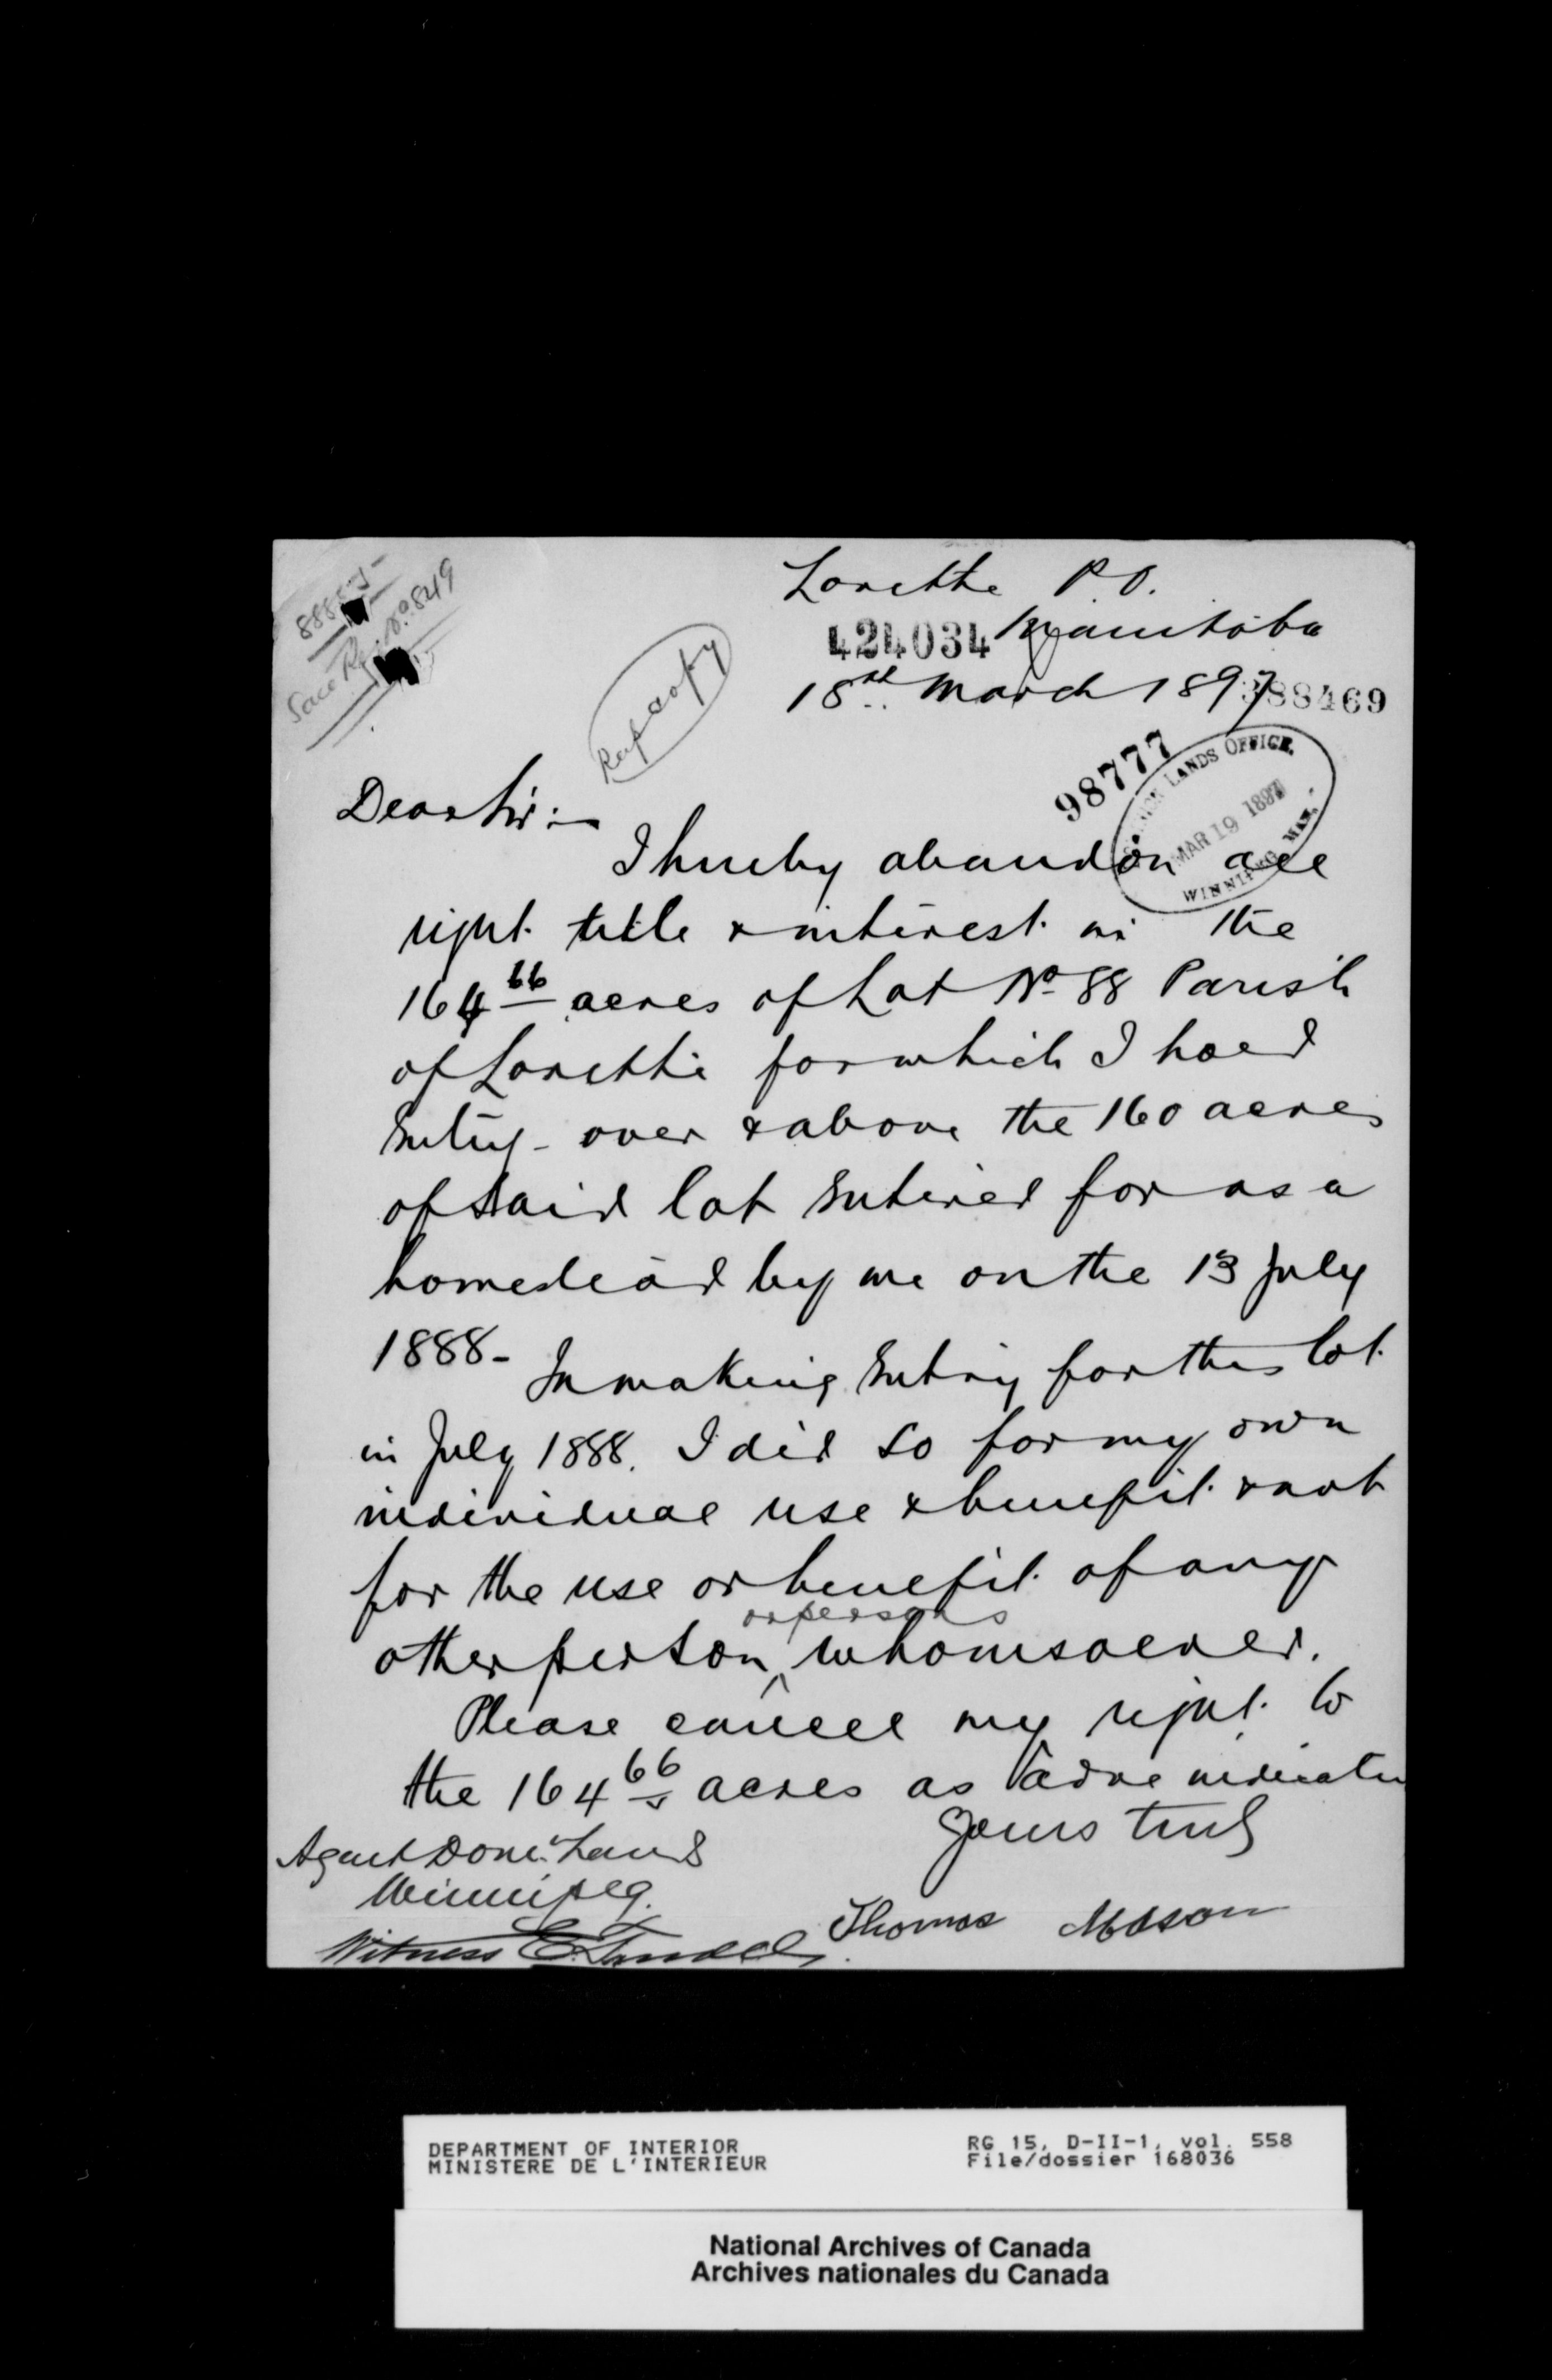 Lorette P.O.
424034 Manitoba
18th March 1897
388469
98777
LANDS OFFICE,
MAR 19 1897
WINNIPEG MAN.
Rep copy
No 849
Dear Sir :—
I hereby abandon all
right title & interest in the
164 66 acres of Lot No 88 Parish
of Lorette for which I hold
Entry - over & above the 160 acres
of said lot Entered for as a
homestead by me on the 13 July
1888 -
In making Entry for this lot
in July 1888. I did so for my own
individual use & benefit & not
for the use or benefit of any
other person ^ or persons whomsoever.
Please cancel my right to
the 164 66 acres as above indicated
Yours truly
Agent Domn Lands
Winnipeg.
Thomas Mason
Witness
DEPARTMENT OF INTERIOR
MINISTERE DE L'INTERIEUR
RG 15, D-II-1, vol. 558
File/dossier 168036
National Archives of Canada
Archives nationales du Canada